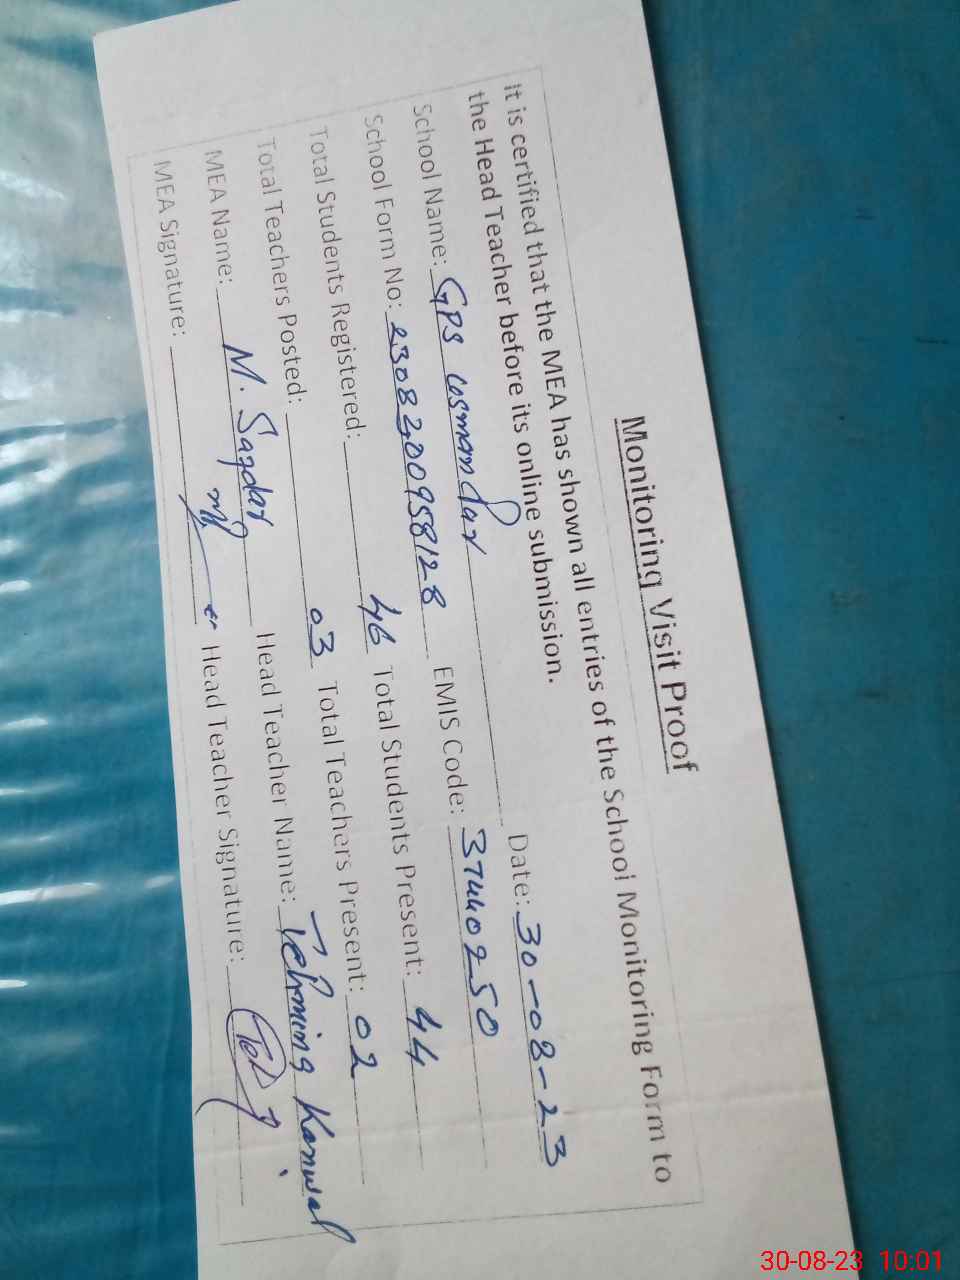 Monitoring Visit Proof
It is certified that the MEA has shown all entries of the School Monitoring Form to
the Head Teacher before its online submission.
School Name: GPS Date: 30-08-23
School Form No: 2308200958128 EMIS Code: 37440250
Total Students Registered: 46 Total Students Present: 44
Total Teachers Posted: 03 Total Teachers Present: 02
MEA Name: M. Safdar Head Teacher Name: Tehmina Kanwal
MEA Signature: Head Teacher Signature:
30-08-23 10:01